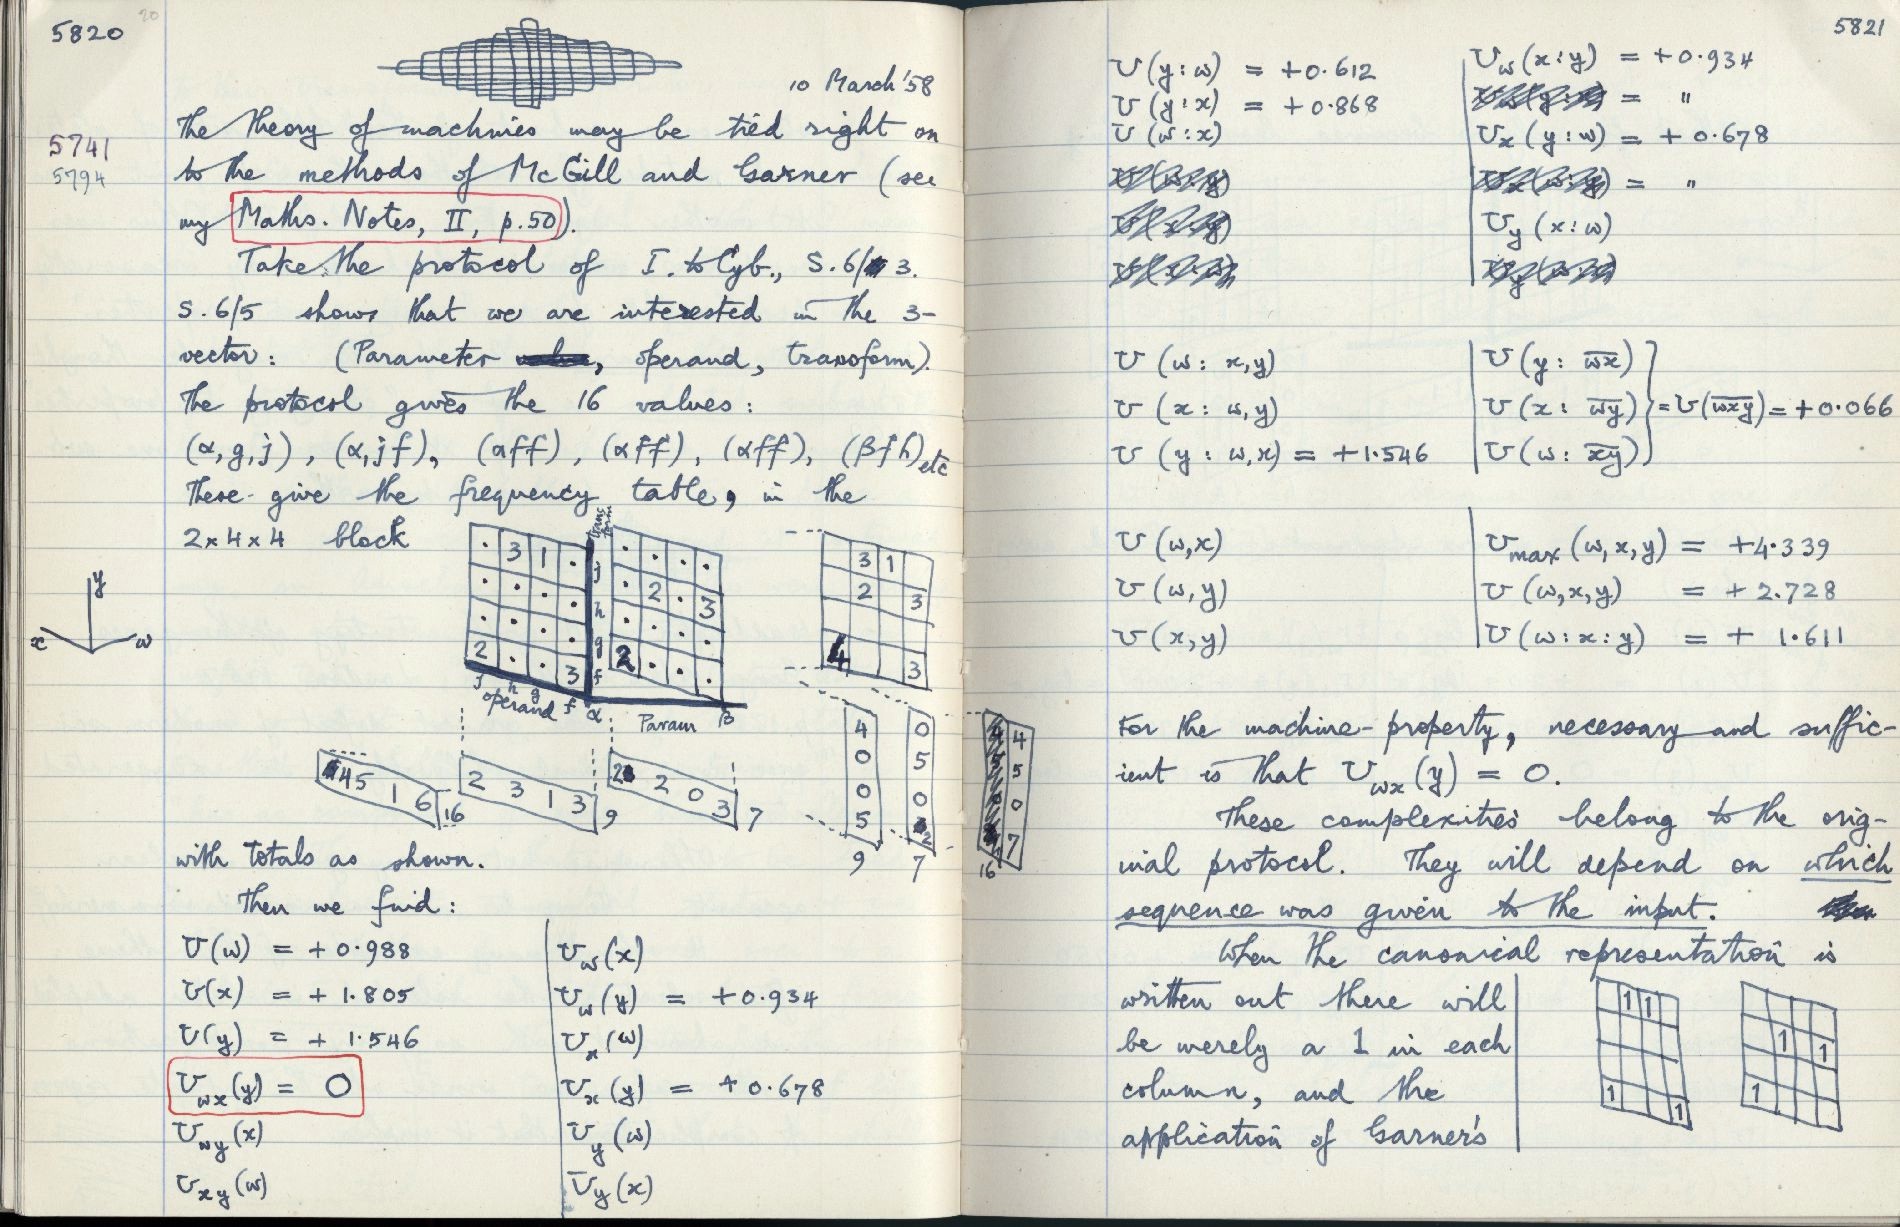 5820
20
10 March '58
5741
5794
The theory of machines may be tied right on
to the methods of McGill and Garner (see
my Maths. Notes, II, p.50).
Take the protocol of I. to Cyb., S.6/3.
S.6/5 shows that we are interested in the 3-
vector: (Parameter, operand, transform).
The protocol gives the 16 values:
(α,g,j), (α,jf), (αff), (αff), (αff), (βfh) etc
These give the frequency table, in the
2×4×4 block
trans form
· 3 1 ·
· · · ·
· · · ·
2 · · 3
j
h
g
f
· · · ·
· 2 · 3
· · · ·
2 · · ·
3 1
2 3
4 3
y
x
w
j h g f
operand
α
Param
β
4 5 1 6
16
2 3 1 3
9
2 2 0 3
7
4
0
0
5
9
0
5
0
2
7
4
5
0
7
16
with totals as shown.
Then we find:
U(w) = +0.988
U(x) = +1.805
U(y) = +1.546
U_wx(y) = 0
U_wy(x)
U_xy(w)
U_w(x)
U_w(y) = +0.934
U_x(w)
U_x(y) = +0.678
U_y(w)
U_y(x)
5821
U(y:w) = +0.612
U(y:x) = +0.868
U(w:x)
U_w(x:y) = +0.934
= "
U_x(y:w) = +0.678
= "
U_y(x:w)
U(w: x,y)
U(x: w,y)
U(y: w,x) = +1.546
U(y: \overline{wx})
U(x: \overline{wy}) } = U(\overline{wxy}) = +0.066
U(w: \overline{xy})
U(w,x)
U(w,y)
U(x,y)
U_max(w,x,y) = +4.339
U(w,x,y) = +2.728
U(w:x:y) = +1.611
For the machine-property, necessary and suffic-
ient is that U_wx(y) = 0.
These complexities belong to the orig-
inal protocol. They will depend on which
sequence was given to the input.
When the canonical representation is
written out there will
be merely a 1 in each
column, and the
application of Garner's
1 1
1 1
1 1
1